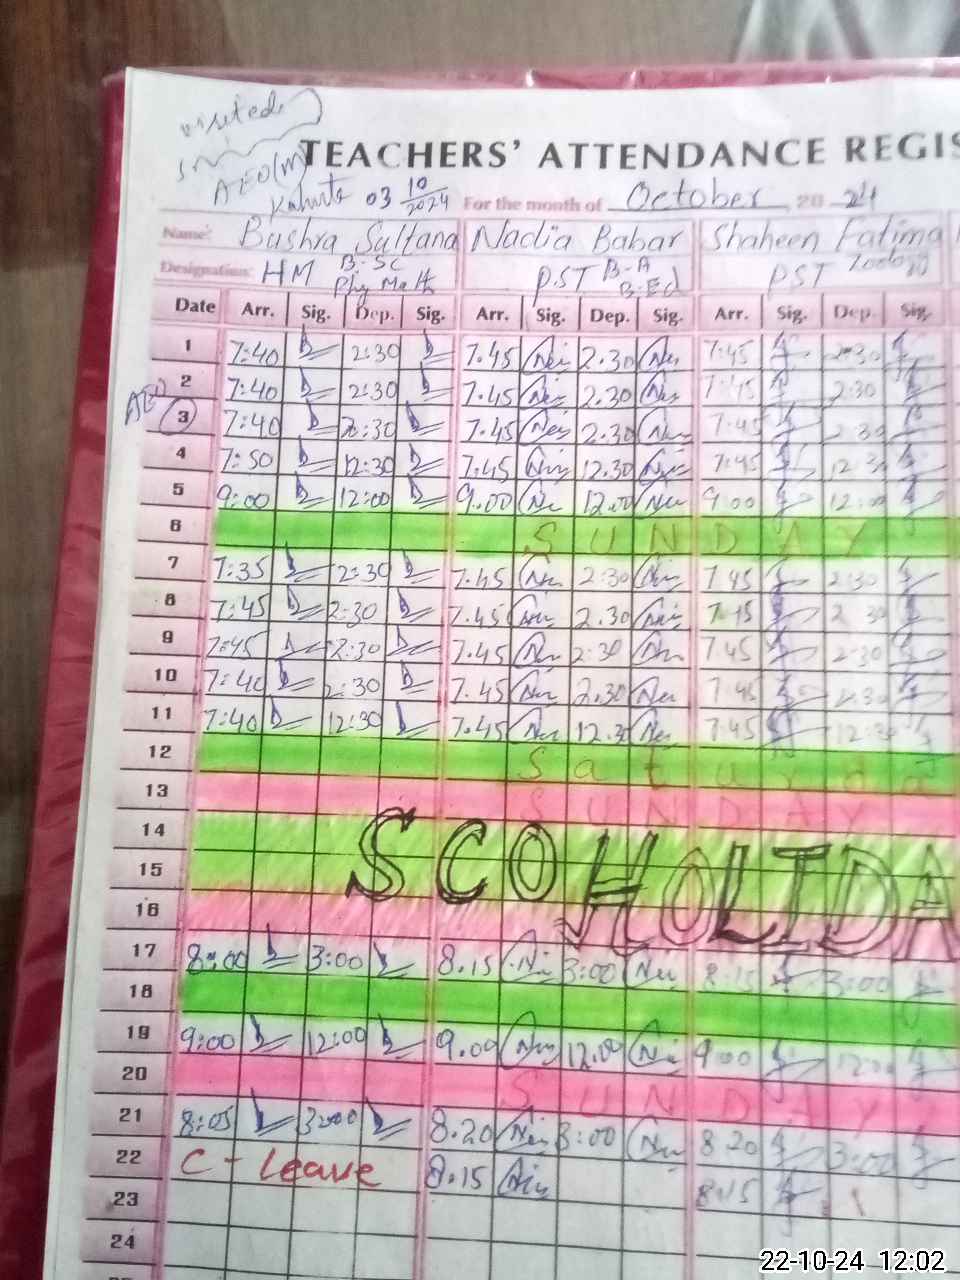 visited
AEO(M)
Kahuta 03 10/2024
TEACHERS' ATTENDANCE REGIS
For the month of October 2024
Name: Bushra Sultana Nadia Babar Shaheen Fatima
Designation: HM B-SC Phy Math PST B-A B-Ed PST Zoology
Date Arr. Sig. Dep. Sig. Arr. Sig. Dep. Sig. Arr. Sig. Dep. Sig.
1 7:40 2:30 7.45 2.30 7:45 2:30
2 7:40 2:30 7.45 2.30 7:45 2:30
AEO 3 7:40 2:30 7.45 2.30 7:45 2:30
4 7:50 12:30 7.45 12.30 7:45 12:30
5 9:00 12:00 9.00 12.00 9:00 12:00
6 SUNDAY
7 7:35 2:30 7.45 2:30 7:45 2:30
8 7:45 2:30 7.45 2.30 7:45 2:30
9 7:45 2:30 7.45 2:30 7:45 2:30
10 7:40 2:30 7.45 2.30 7:45 2:30
11 7:40 12:30 7.45 12.30 7:45 12:30
12 Saturda
13 SUNDAY
14
SCO HOLIDA
15
16
17 8:00 3:00 8.15 3:00 8:15 3:00
18
19 9:00 12:00 9.00 12.00 9:00 12:00
20 SUNDAY
21 8:05 3:00 8.20 3:00 8:20 3:00
22 C-Leave 8.15 8:15
23
24
22-10-24 12:02